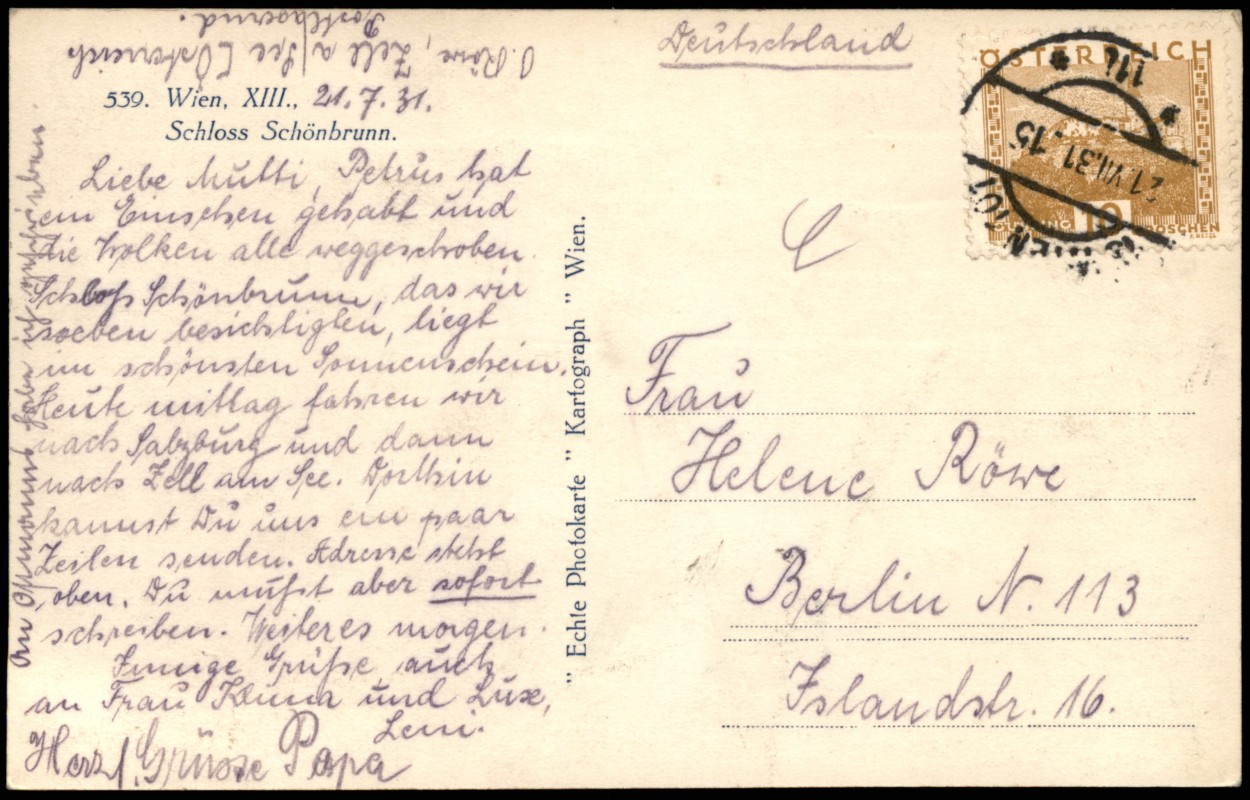 O. Röwe, Zell a/See (Österreich
Postlagernd.
539. Wien, XIII., 21.7.31.
Schloss Schönbrunn.
Liebe Mutti, Petrus hat
ein Einsehen gehabt und
die Wolken alle weggeschoben.
Schloß Schönbrunn, das wir
soeben besichtigten, liegt
im schönsten Sonnenschein.
Heute mittag fahren wir
nach Salzburg und dann
nach Zell am See. Dorthin
kannst Du uns ein paar
Zeilen senden. Adresse steht
oben. Du mußt aber sofort
schreiben. Weiteres morgen.
Innige Grüße, auch
an Frau und Luxe,
Leni.
Herzl. Grüsse Papa
habe ich geschrieben
" Echte Photokarte " Kartograph " Wien.
Deutschland
ÖSTERREICH
10
GROSCHEN
21.VII.31.15
WIEN 101
Frau
Helene Röwe
Berlin N. 113
Islandstr. 16.